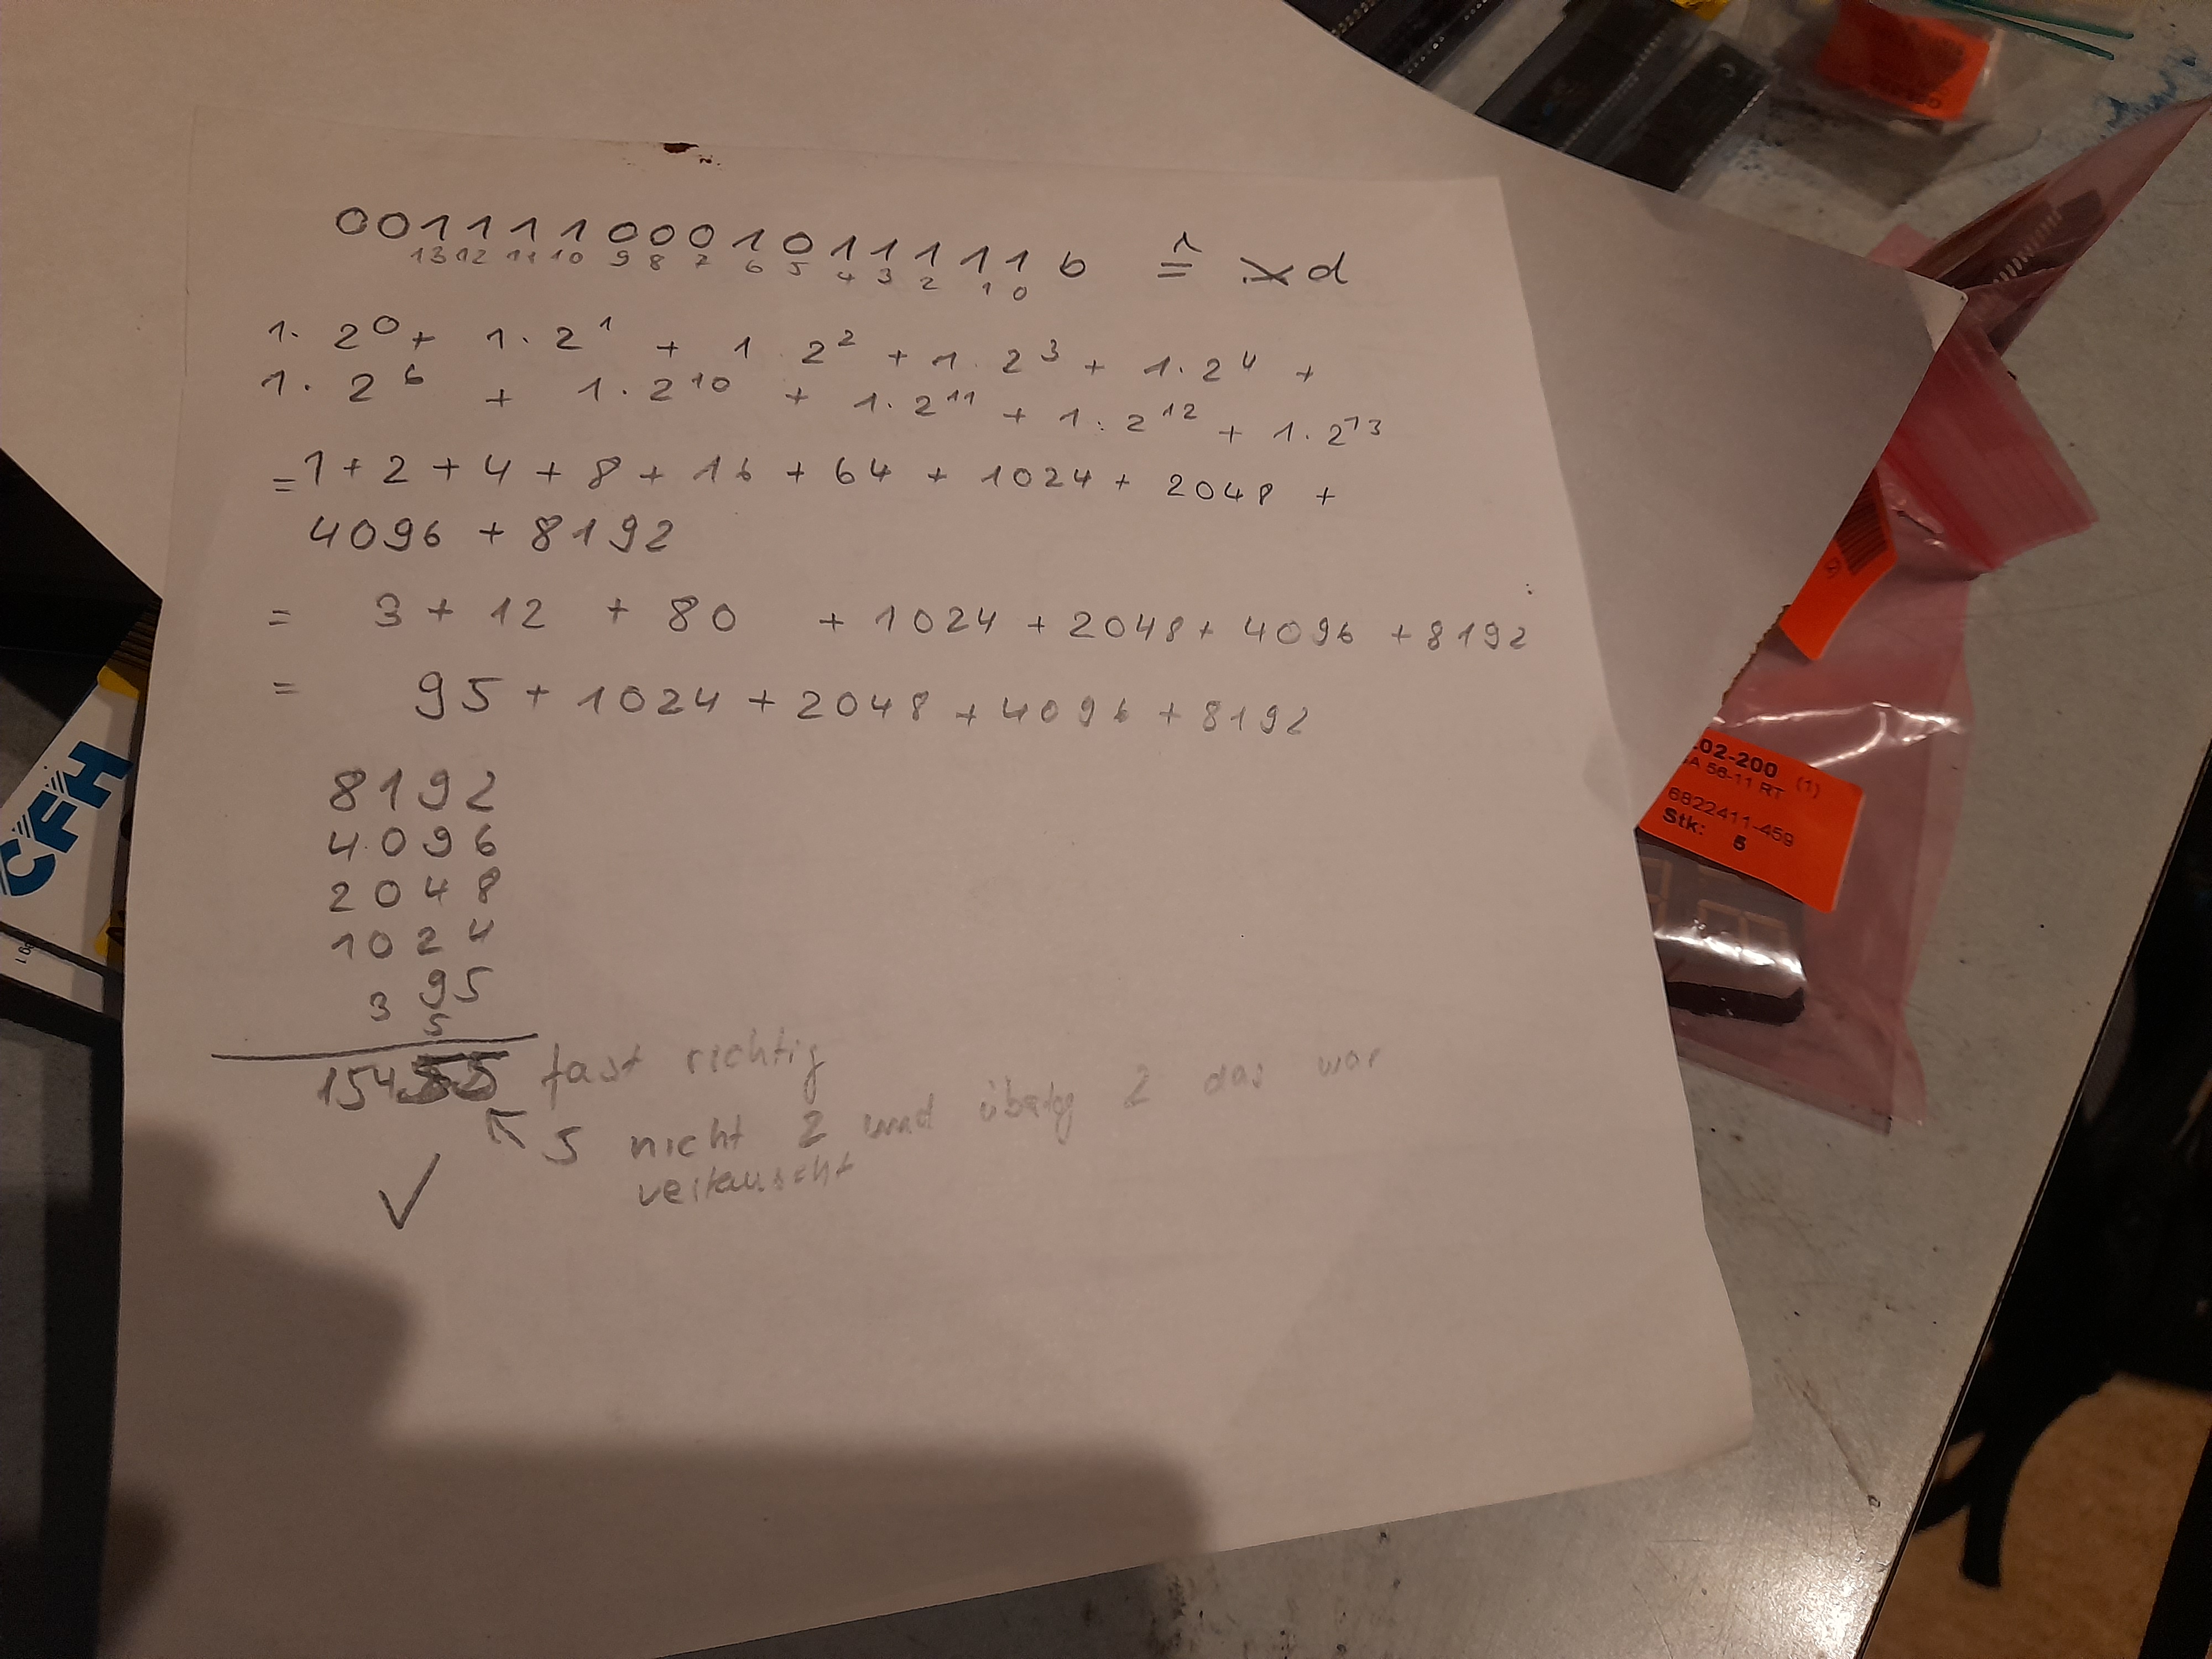 0011110001011111 b ≙ x d
13 12 11 10 9 8 7 6 5 4 3 2 1 0
1· 2^0 + 1·2^1 + 1 2^2 + 1·2^3 + 1·2^4 +
1· 2^6 + 1·2^10 + 1·2^11 + 1·2^12 + 1·2^13
= 1 + 2 + 4 + 8 + 16 + 64 + 1024 + 2048 +
4096 + 8192
= 3 + 12 + 80 + 1024 + 2048 + 4096 + 8192
= 95 + 1024 + 2048 + 4096 + 8192
8192
4096
2048
1024
95
3 5
15455 fast richtig
5 nicht 2 und 2 das war
vertauscht
✓
CFH
(1)
6822411-459
Stk: 5